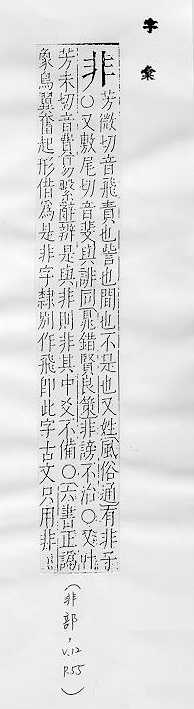 字彙
非
芳微切音飛責也訾也間也不是也又姓風俗通有非子
○又敷尾切音斐與誹同鼂錯賢良策非謗不治○又叶
芳未切音費易繫辭辨是與非則非其中爻不備○六書正譌
象鳥翼奮起形借為是非字隸別作飛卽此字古文只用非
(非部, V.12 P.55)